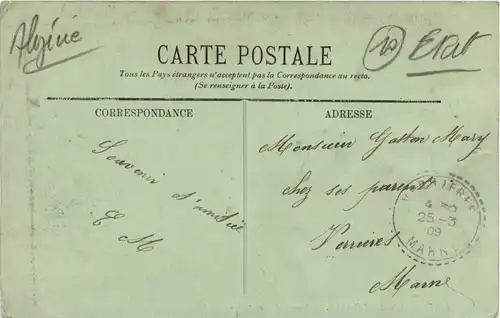 Algérie
10
Etat
CARTE POSTALE
Tous les Pays étrangers n'acceptent pas la Correspondance au recto.
(Se renseigner à la Poste).
CORRESPONDANCE
Souvenir d'amitié
E M
ADRESSE
Monsieur Gaston Mary
chez ses parents
Verrières
Marne
4 30
25-3
09
MARNE